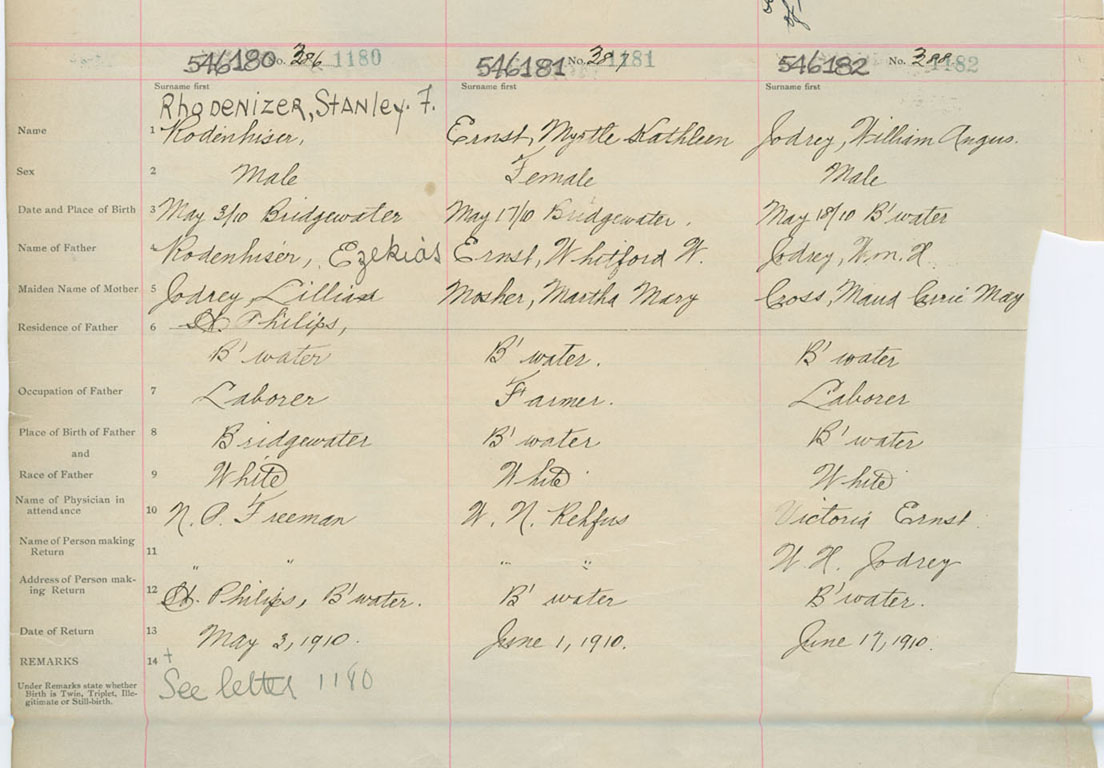 546180 No. 386 1180
546181 No. 387 1181
546182 No. 388 1182
Surname first
Surname first
Surname first
Rhodenizer, Stanley. F.
Name 1 Rodenhiser, Ernst, Myrtle Kathleen Jodrey, William Angus.
Sex 2 Male Female Male
Date and Place of Birth 3 May 3/10 Bridgewater May 17/10 Bridgewater. May 18/10 B'water
Name of Father 4 Rodenhiser, Ezekias Ernst, Whitford W. Jodrey, Wm. H.
Maiden Name of Mother 5 Jodrey, Lillian Mosher, Martha Mary Cross, Maud Carrie May
Residence of Father 6 St. Philips,
B'water B'water. B'water
Occupation of Father 7 Laborer Farmer. Laborer
Place of Birth of Father 8 Bridgewater B'water B'water
and
Race of Father 9 White White White
Name of Physician in
attendance 10 N. P. Freeman W. N. Rehfus Victoria Ernst.
Name of Person making
Return 11 " " " " W. H. Jodrey
Address of Person mak-
ing Return 12 St. Philips, B'water. B'water B'water.
Date of Return 13 May 3, 1910. June 1, 1910. June 17, 1910.
REMARKS 14 +
See letter 1180
Under Remarks state whether
Birth is Twin, Triplet, Ille-
gitimate or Still-birth.